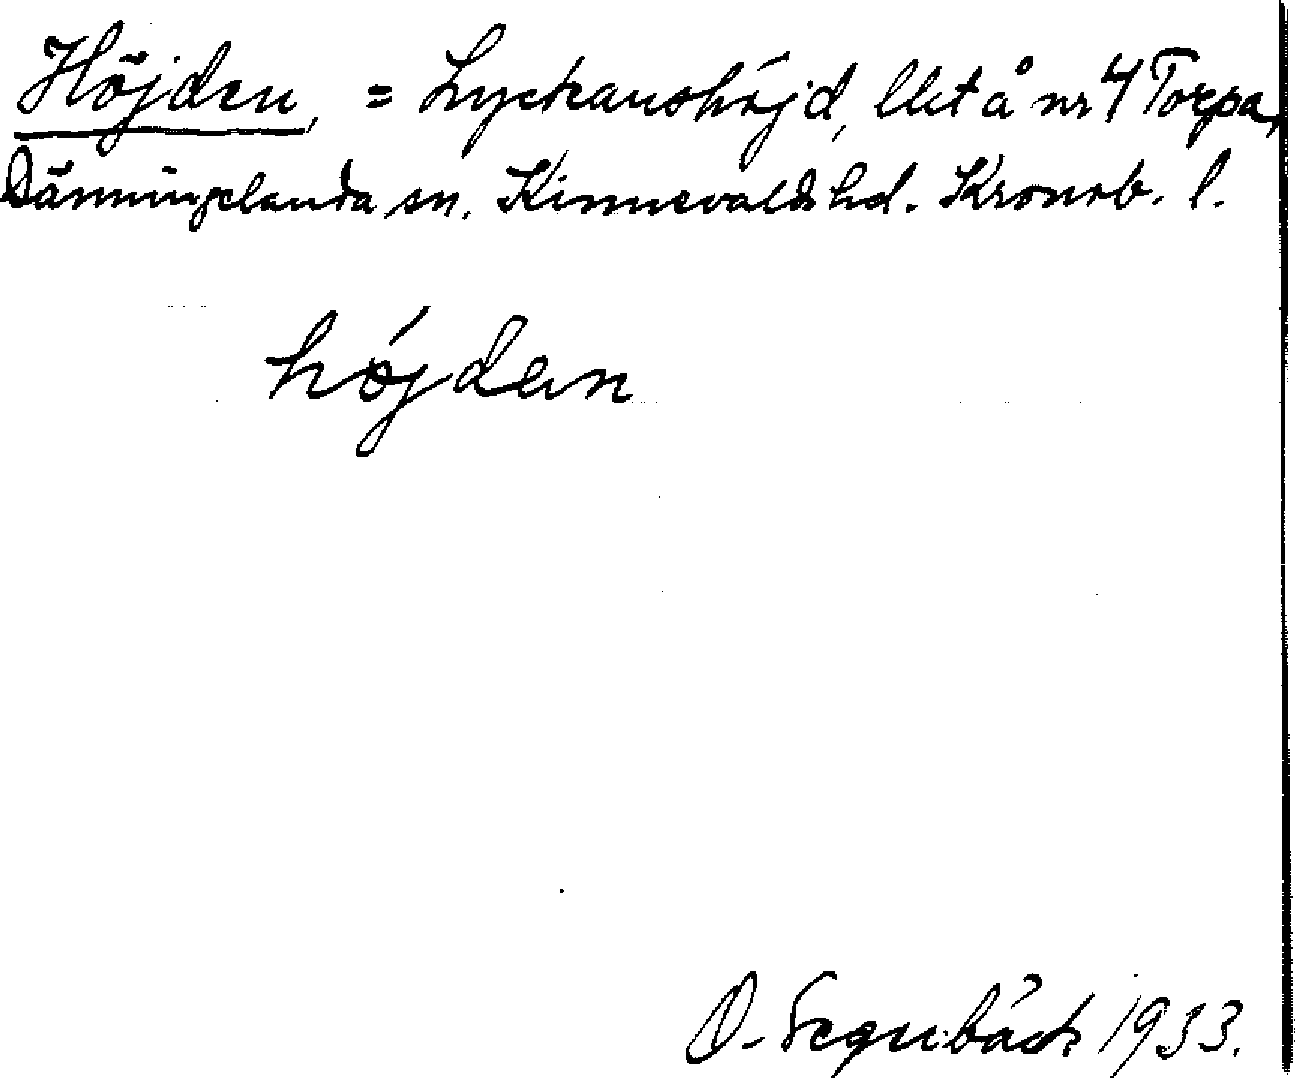 Höjden, = Lyckanshöjd, llkt å nr 4 Torpa,
Dänningelanda sn. Kinnevalds hd. Kronob. l.
höjdən
O.
1933.